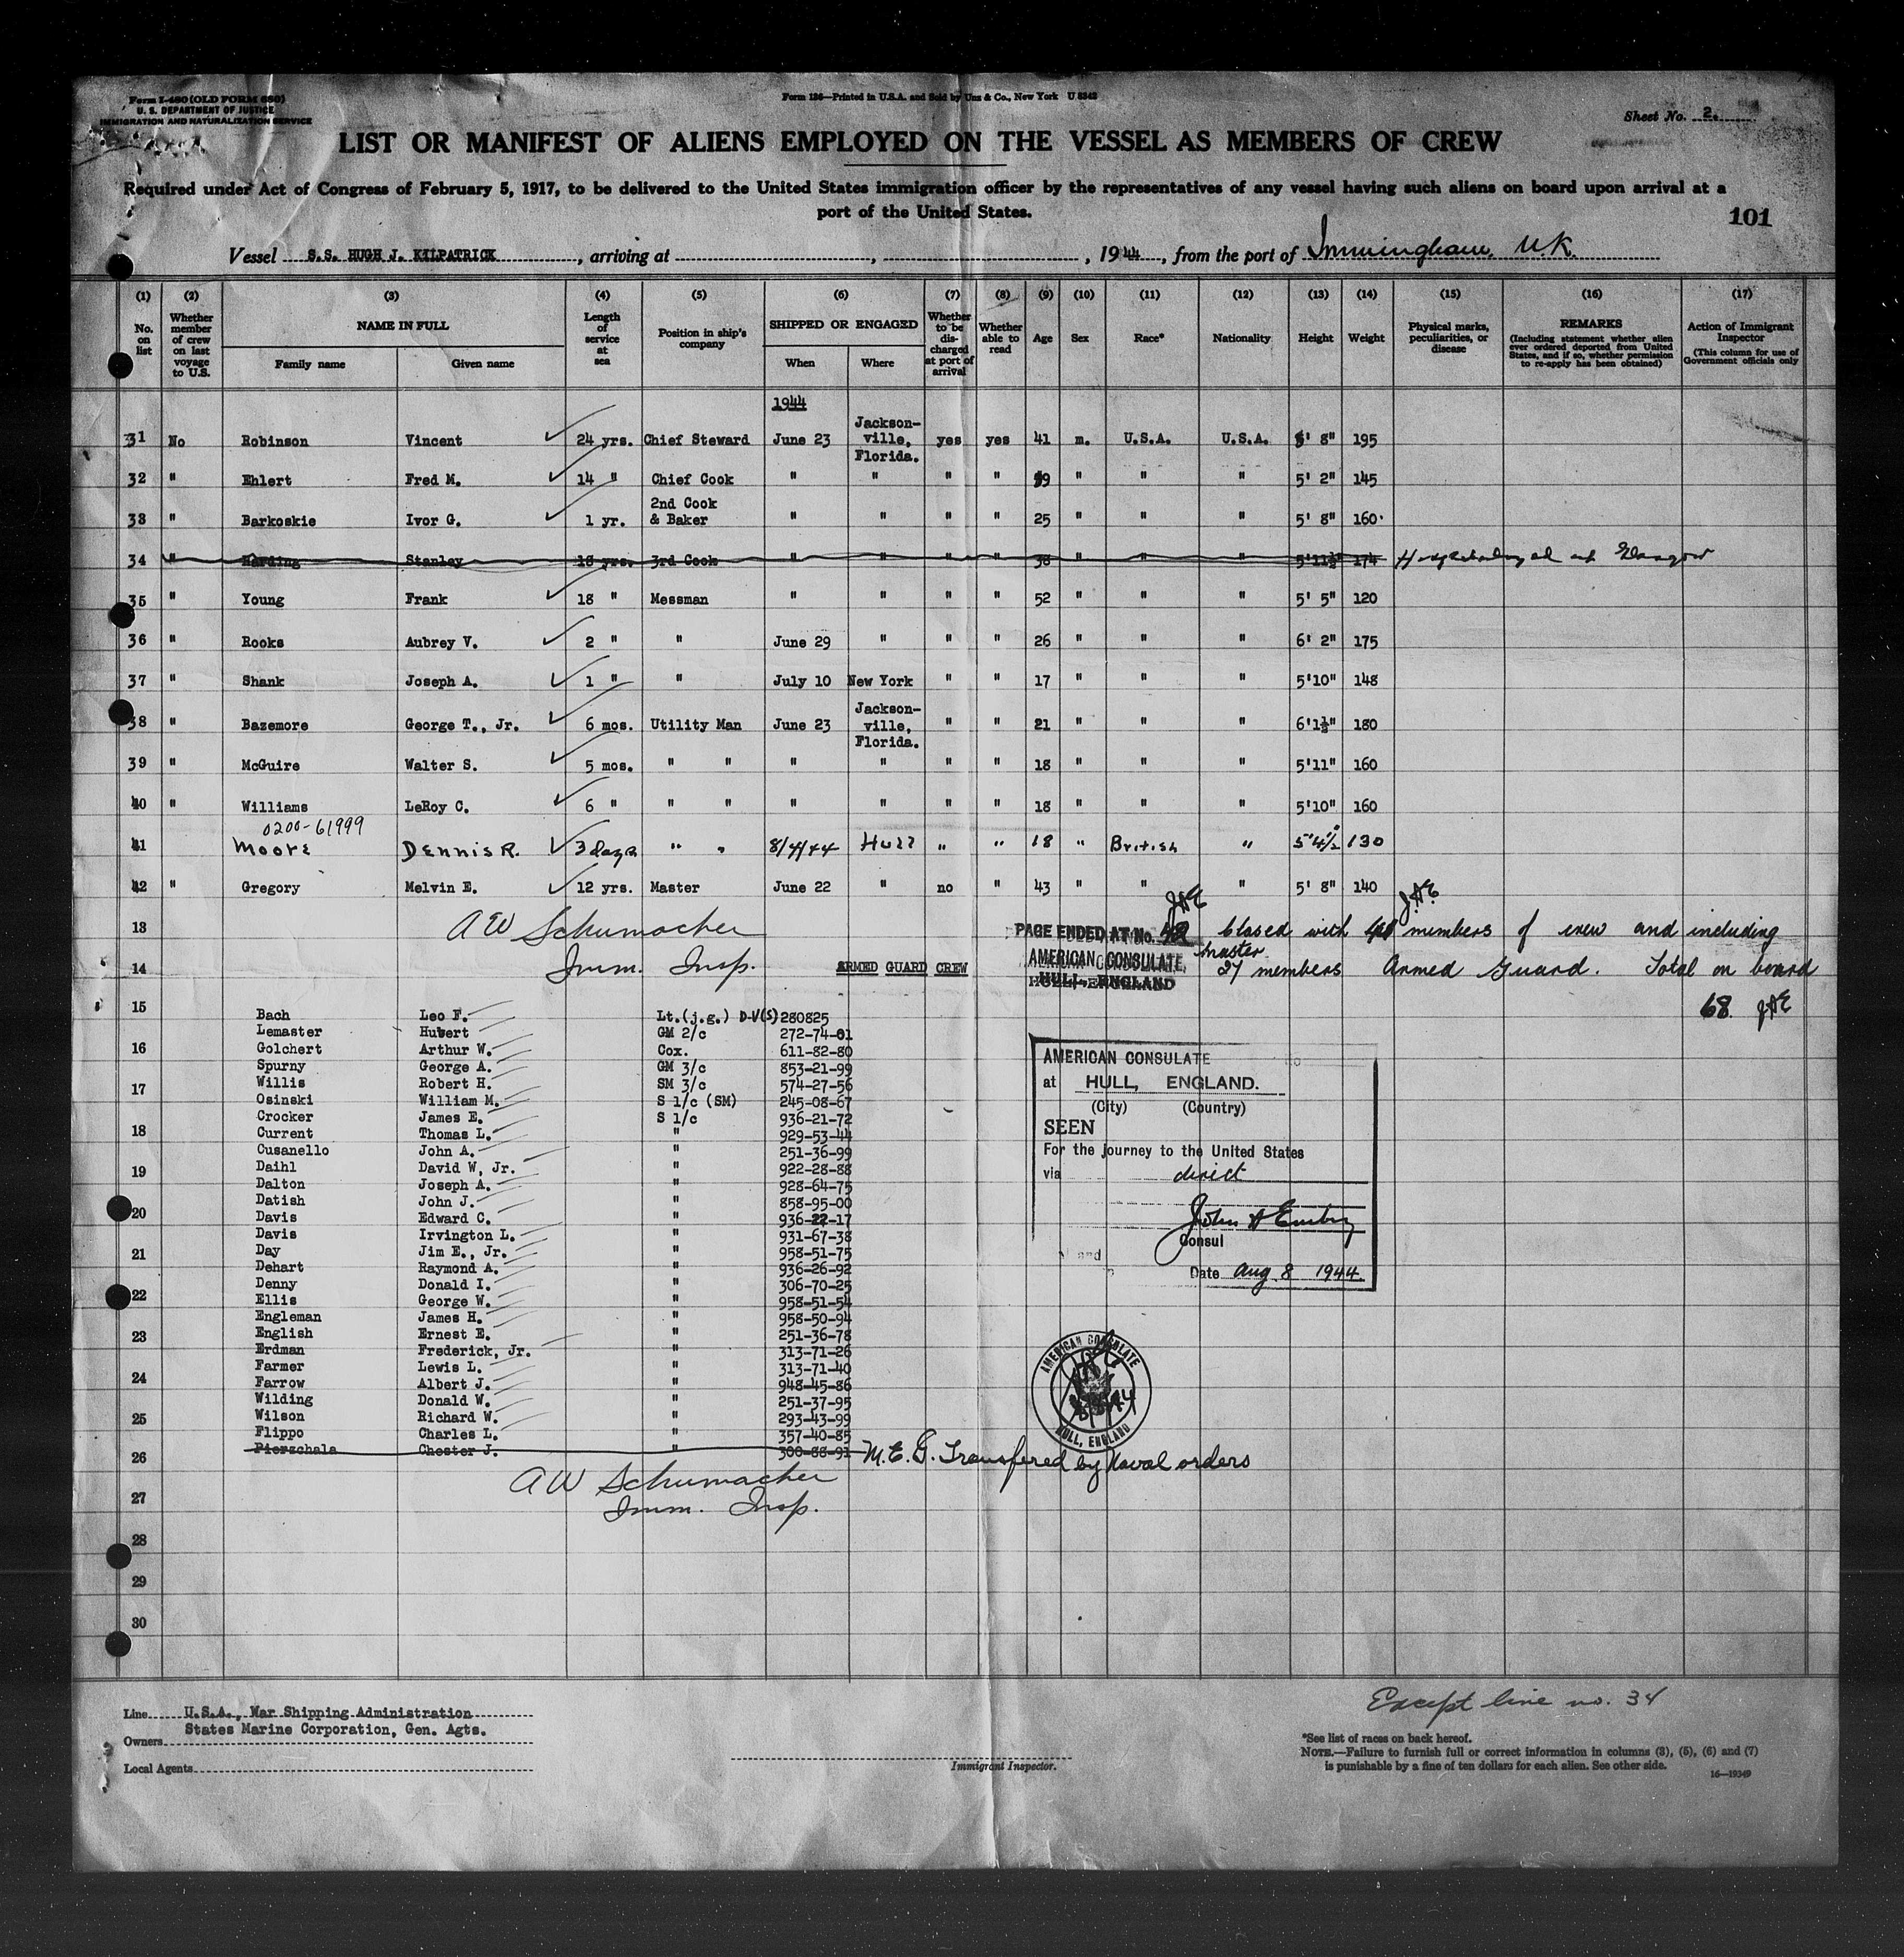 Form I-480 (OLD FORM 680)
U. S. DEPARTMENT OF JUSTICE
IMMIGRATION AND NATURALIZATION SERVICE
Form 126—Printed in U.S.A. and Sold by Unz & Co., New York U 8342
Sheet No. 2.
LIST OR MANIFEST OF ALIENS EMPLOYED ON THE VESSEL AS MEMBERS OF CREW
Required under Act of Congress of February 5, 1917, to be delivered to the United States immigration officer by the representatives of any vessel having such aliens on board upon arrival at a
port of the United States.
101
Vessel S.S. HUGH J. KILPATRICK, arriving at , , 1944, from the port of Immingham, U.K.
(1) (2) (3) (4) (5) (6) (7) (8) (9) (10) (11) (12) (13) (14) (15) (16) (17)
No. on list
Whether member of crew on last voyage to U.S.
NAME IN FULL
Family name Given name
Length of service at sea
Position in ship's company
SHIPPED OR ENGAGED
When Where
Whether to be discharged at port of arrival
Whether able to read
Age Sex Race* Nationality Height Weight
Physical marks, peculiarities, or disease
REMARKS
(Including statement whether alien ever ordered deported from United States, and if so, whether permission to re-apply has been obtained)
Action of Immigrant Inspector
(This column for use of Government officials only
1944
31 No Robinson Vincent 24 yrs. Chief Steward June 23 Jackson-ville, Florida. yes yes 41 m. U.S.A. U.S.A. 5' 8" 195
32 " Ehlert Fred M. 14 " Chief Cook " " " " 59 " " " 5' 2" 145
33 " Barkoskie Ivor G. 1 yr. 2nd Cook & Baker " " " " 25 " " " 5' 8" 160
34 " Harding Stanley 18 yrs. 3rd Cook " " " " 38 " " " 5'11½" 174 Hospitalized at Glasgow
35 " Young Frank 18 " Messman " " " " 52 " " " 5' 5" 120
36 " Rooks Aubrey V. 2 " " June 29 " " " 26 " " " 6' 2" 175
37 " Shank Joseph A. 1 " " July 10 New York " " 17 " " " 5'10" 148
38 " Bazemore George T., Jr. 6 mos. Utility Man June 23 Jackson-ville, Florida. " " 21 " " " 6'1½" 180
39 " McGuire Walter S. 5 mos. " " " " " " 18 " " " 5'11" 160
40 " Williams LeRoy C. 6 " " " " " " " 18 " " " 5'10" 160
0200-61999
41 Moore Dennis R. 3 days " " 8/4/44 Hull " " 18 " British " 5'4½" 130
42 " Gregory Melvin E. 12 yrs. Master June 22 " no " 43 " " " 5' 8" 140
JAE J.A.E.
13 A W Schumacher PAGE ENDED AT No. 42 closed with members of crew and including
Imm. Insp. master
14 ARMED GUARD CREW AMERICAN CONSULATE, 27 members Armed Guard. Total on board
HULL, ENGLAND
68 JAE
15
Bach Leo F. Lt.(j.g.) D-V(S) 280825
Lemaster Hubert GM 2/c 272-74-01
16 Golchert Arthur W. Cox. 611-82-80
Spurny George A. GM 3/c 853-21-99
17 Willis Robert H. SM 3/c 574-27-56
Osinski William M. S 1/c (SM) 245-08-67
Crocker James E. S 1/c 936-21-72
18 Current Thomas L. " 929-53-44
Cusanello John A. " 251-36-99
19 Daihl David W, Jr. " 922-28-88
Dalton Joseph A. " 928-64-75
Datish John J. " 858-95-00
20 Davis Edward C. " 936-22-17
Davis Irvington L. " 931-67-38
21 Day Jim E., Jr. " 958-51-75
Dehart Raymond A. " 936-26-92
Denny Donald I. " 306-70-25
22 Ellis George W. " 958-51-54
Engleman James H. " 958-50-94
23 English Ernest E. " 251-36-78
Erdman Frederick, Jr. " 313-71-26
Farmer Lewis L. " 313-71-40
24 Farrow Albert J. " 948-45-86
Wilding Donald W. " 251-37-95
25 Wilson Richard W. " 293-43-99
Flippo Charles L. " 357-40-85
26 Pierzchala Chester J. " 300-88-91 M.E.G. Transfered by Naval orders
A W Schumacher
27 Imm. Insp.
28
29
30
AMERICAN CONSULATE
at HULL, ENGLAND.
(City) (Country)
SEEN
For the journey to the United States
via direct
John A Embry
Consul
Date Aug 8 1944
AMERICAN CONSULATE
HULL, ENGLAND
Except line no. 34
Line U.S.A., War Shipping Administration
States Marine Corporation, Gen. Agts.
Owners
Local Agents
Immigrant Inspector.
*See list of races on back hereof.
NOTE.—Failure to furnish full or correct information in columns (3), (5), (6) and (7)
is punishable by a fine of ten dollars for each alien. See other side.
16—19349